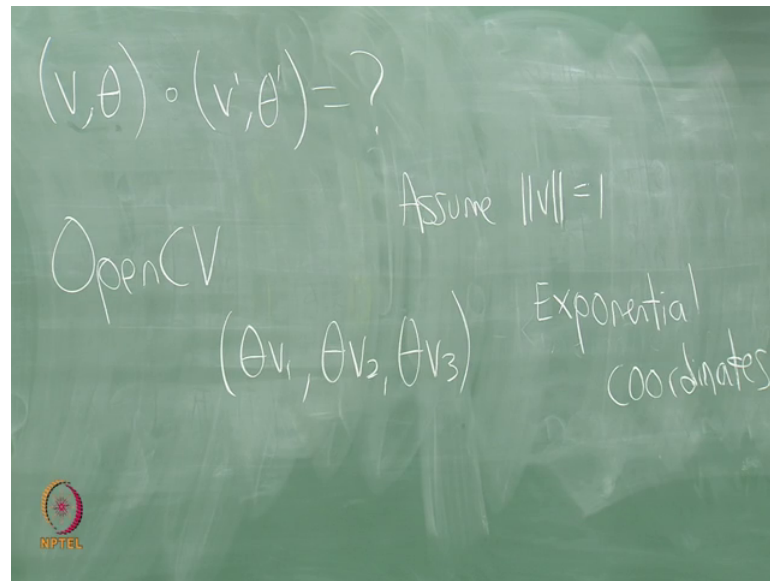 (v,θ) ∘ (v',θ') = ?
Assume ||v|| = 1
OpenCV
(θv₁, θv₂, θv₃)
Exponential
coordinates
NPTEL